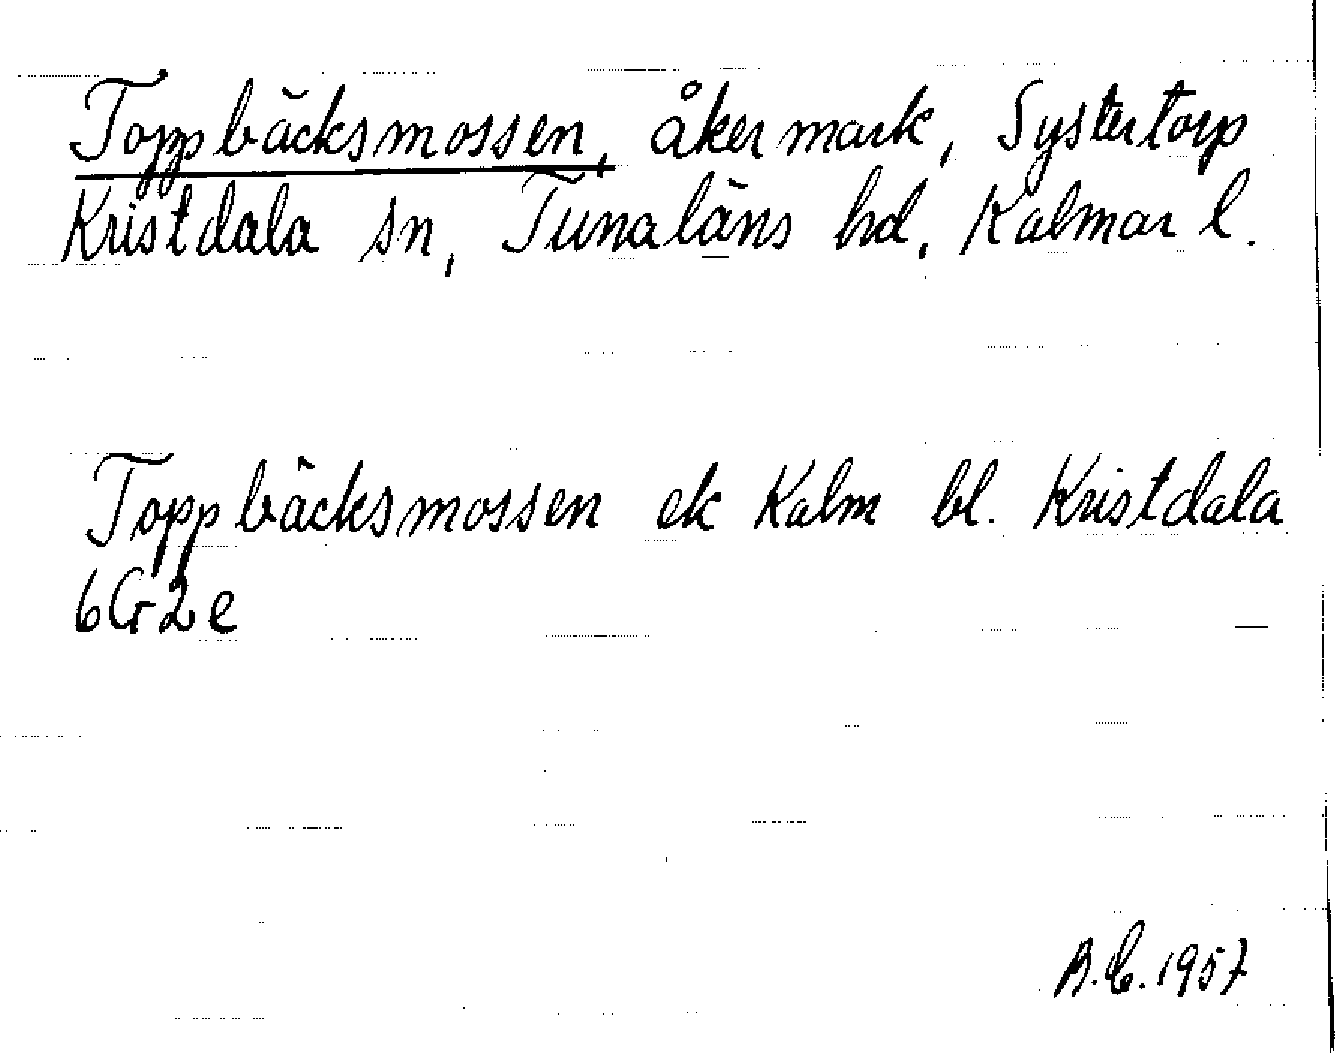 Toppbäcksmossen, åkermark, Systertorp
Kristdala sn, Tunaläns hd, Kalmar l.
Toppbäcksmossen ek Kalm bl. Kristdala
6G2e
B.C. 1957